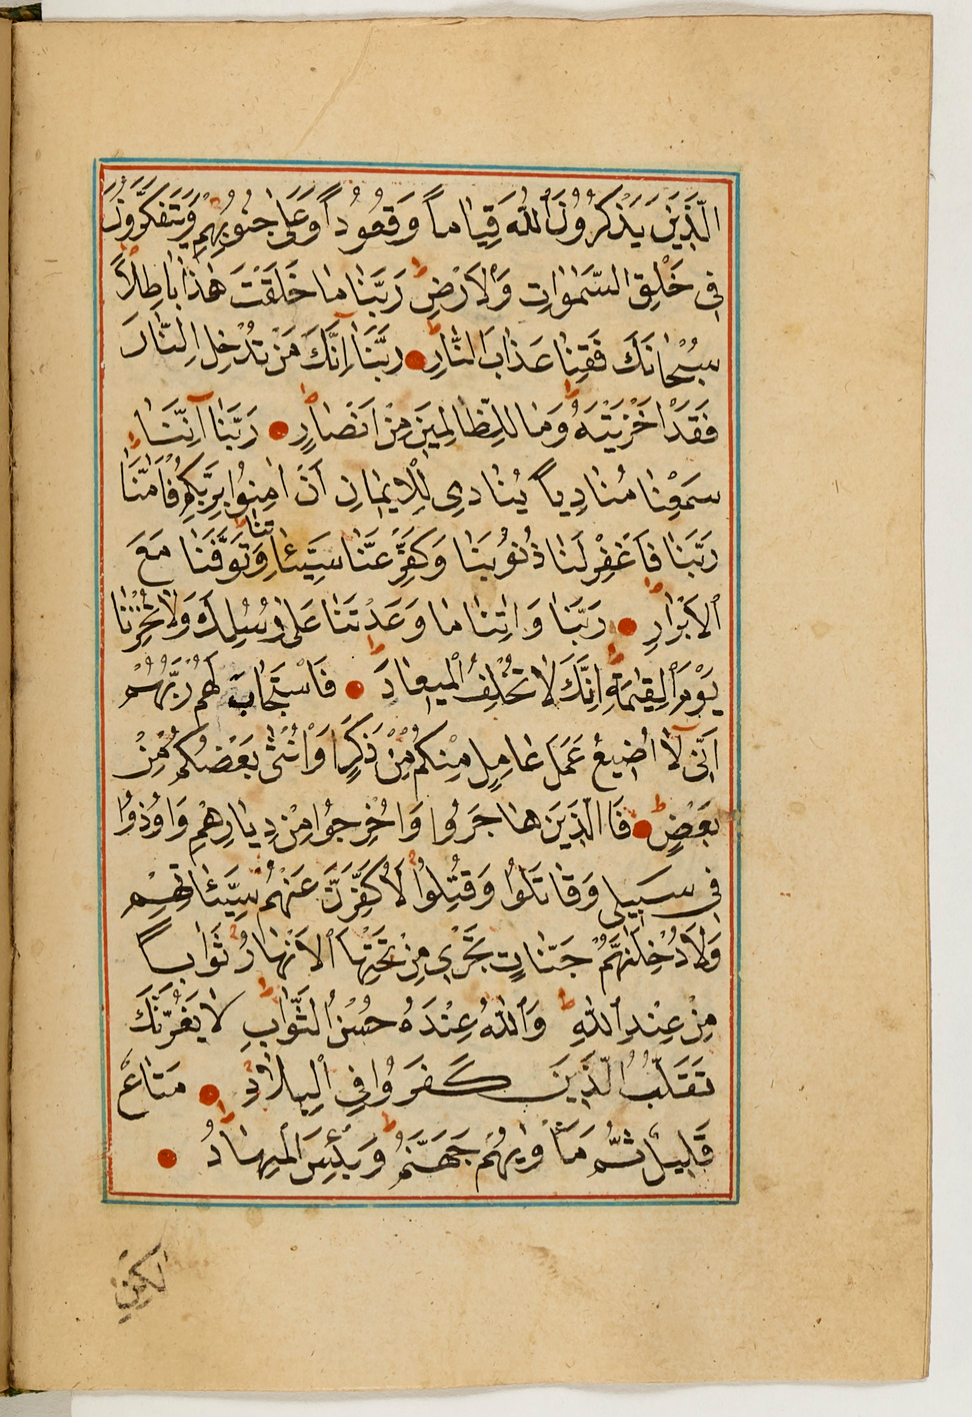 الَّذِينَ يَذْكُرُونَ ٱللّٰهَ قِيَاماً وَقُعُوداً وَعَلٰى جُنُوبِهِمْ وَيَتَفَكَّرُونَ
فِى خَلْقِ السَّمٰوٰاتِ وَٱلْاَرْضِ ط رَبَّنٰا مٰا خَلَقْتَ هٰذٰا بٰاطِلاً
سُبْحٰانَكَ فَقِنٰا عَذٰابَ النّٰارِ رَبَّنَا اِنَّكَ مَنْ تُدْخِلِ النّٰارَ
فَقَدْ اَخْزَيْتَهُ ط وَمٰا لِلظّٰالِمِينَ مِنْ اَنْصٰارٍ رَبَّنٰا اِنَّنٰا
سَمِعْنٰا مُنٰادِياً يُنٰادِى لِلْاِيمٰانِ اَنْ اٰمِنُوا بِرَبِّكُمْ فَاٰمَنّٰا
رَبَّنٰا فَاغْفِرْ لَنٰا ذُنُوبَنٰا وَكَفِّرْ عَنّٰا سَيِّئٰاتِنٰا وَتَوَفَّنٰا مَعَ
ٱلْاَبْرٰارِ رَبَّنٰا وَاٰتِنٰا مٰا وَعَدْتَنٰا عَلٰى رُسُلِكَ وَلٰا تُخْزِنٰا
يَوْمَ ٱلْقِيٰمَةِ ط اِنَّكَ لٰا تُخْلِفُ ٱلْمِيعٰادَ فَاسْتَجٰابَ لَهُمْ رَبُّهُمْ
اَنِّى لٰا اُضِيعُ عَمَلَ عٰامِلٍ مِنْكُمْ مِنْ ذَكَرٍ اَوْ اُنْثٰى بَعْضُكُمْ مِنْ
بَعْضٍ ط فَالَّذِينَ هٰاجَرُوا وَاُخْرِجُوا مِنْ دِيٰارِهِمْ وَاُوذُوا
فِى سَبِيلِى وَقٰاتَلُوا وَقُتِلُوا لَاُكَفِّرَنَّ عَنْهُمْ سَيِّئٰاتِهِمْ
وَلَاُدْخِلَنَّهُمْ جَنّٰاتٍ تَجْرِى مِنْ تَحْتِهَا ٱلْاَنْهٰارُ ثَوٰاباً
مِنْ عِنْدِ ٱللّٰهِ ط وَٱللّٰهُ عِنْدَهُ حُسْنُ الثَّوٰابِ لٰا يَغُرَّنَّكَ
تَقَلُّبُ الَّذِينَ كَفَرُوا فِى الْبِلٰادِ مَتٰاعٌ
قَلِيلٌ ثُمَّ مَأْوٰيهُمْ جَهَنَّمُ ط وَبِئْسَ الْمِهٰادُ
لكن